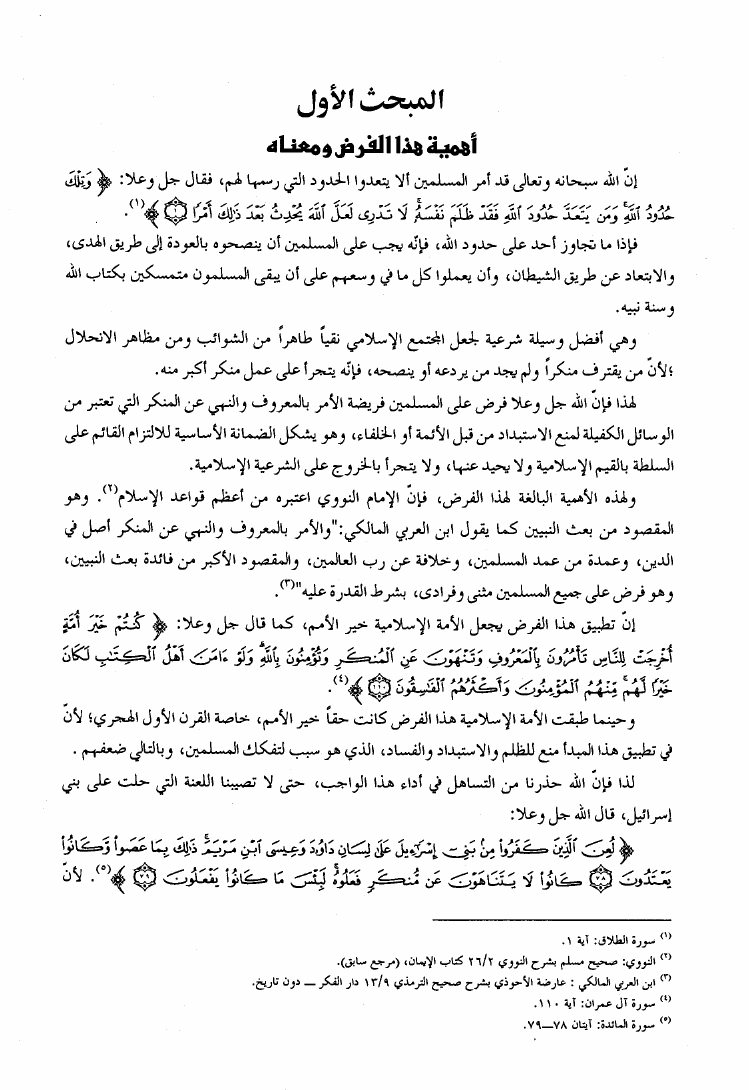 المبحث الأول
أهمية هذا الفرض ومعناه
إنّ الله سبحانه وتعالى قد أمر المسلمين ألا يتعدوا الحدود التي رسمها لهم، فقال جل وعلا: ﴿ وَتِلْكَ
حُدُودُ ٱللَّهِ ۚ وَمَن يَتَعَدَّ حُدُودَ ٱللَّهِ فَقَدْ ظَلَمَ نَفْسَهُۥ ۚ لَا تَدْرِى لَعَلَّ ٱللَّهَ يُحْدِثُ بَعْدَ ذَٰلِكَ أَمْرًا ﴿١﴾ ﴾(١).
فإذا ما تجاوز أحد على حدود الله، فإنّه يجب على المسلمين أن ينصحوه بالعودة إلى طريق الهدى،
والابتعاد عن طريق الشيطان، وأن يعملوا كل ما في وسعهم على أن يبقى المسلمون متمسكين بكتاب الله
وسنة نبيه.
وهي أفضل وسيلة شرعية لجعل المجتمع الإسلامي نقياً طاهراً من الشوائب ومن مظاهر الانحلال
؛لأنّ من يقترف منكراً ولم يجد من يردعه أو ينصحه، فإنّه يتجرأ على عمل منكر أكبر منه.
لهذا فإنّ الله جل وعلا فرض على المسلمين فريضة الأمر بالمعروف والنهي عن المنكر التي تعتبر من
الوسائل الكفيلة لمنع الاستبداد من قبل الأئمة أو الخلفاء، وهو يشكل الضمانة الأساسية للالتزام القائم على
السلطة بالقيم الإسلامية ولا يحيد عنها، ولا يتجرأ بالخروج على الشرعية الإسلامية.
ولهذه الأهمية البالغة لهذا الفرض، فإنّ الإمام النووي اعتبره من أعظم قواعد الإسلام(٢). وهو
المقصود من بعث النبيين كما يقول ابن العربي المالكي:"والأمر بالمعروف والنهي عن المنكر أصل في
الدين، وعمدة من عمد المسلمين، وخلافة عن رب العالمين، والمقصود الأكبر من فائدة بعث النبيين،
وهو فرض على جميع المسلمين مثنى وفرادى، بشرط القدرة عليه"(٣).
إنّ تطبيق هذا الفرض يجعل الأمة الإسلامية خير الأمم، كما قال جل وعلا: ﴿ كُنتُمْ خَيْرَ أُمَّةٍ
أُخْرِجَتْ لِلنَّاسِ تَأْمُرُونَ بِٱلْمَعْرُوفِ وَتَنْهَوْنَ عَنِ ٱلْمُنكَرِ وَتُؤْمِنُونَ بِٱللَّهِ ۗ وَلَوْ ءَامَنَ أَهْلُ ٱلْكِتَٰبِ لَكَانَ
خَيْرًا لَّهُم ۚ مِّنْهُمُ ٱلْمُؤْمِنُونَ وَأَكْثَرُهُمُ ٱلْفَٰسِقُونَ ﴿١١٠﴾ ﴾(٤).
وحينما طبقت الأمة الإسلامية هذا الفرض كانت حقاً خير الأمم، خاصة القرن الأول الهجري؛ لأنّ
في تطبيق هذا المبدأ منع للظلم والاستبداد والفساد، الذي هو سبب لتفكك المسلمين، وبالتالي ضعفهم .
لذا فإنّ الله حذرنا من التساهل في أداء هذا الواجب، حتى لا تصيبنا اللعنة التي حلت على بني
إسرائيل، قال الله جل وعلا:
﴿ لُعِنَ ٱلَّذِينَ كَفَرُوا۟ مِنۢ بَنِىٓ إِسْرَٰٓءِيلَ عَلَىٰ لِسَانِ دَاوُۥدَ وَعِيسَى ٱبْنِ مَرْيَمَ ۚ ذَٰلِكَ بِمَا عَصَوا۟ وَّكَانُوا۟
يَعْتَدُونَ ﴿٧٨﴾ كَانُوا۟ لَا يَتَنَاهَوْنَ عَن مُّنكَرٍ فَعَلُوهُ ۚ لَبِئْسَ مَا كَانُوا۟ يَفْعَلُونَ ﴿٧٩﴾ ﴾(٥). لأنّ
(١) سورة الطلاق: آية ١.
(٢) النووي: صحيح مسلم بشرح النووي ٢٦/٢ كتاب الإيمان، (مرجع سابق).
(٣) ابن العربي المالكي : عارضة الأحوذي بشرح صحيح الترمذي ١٣/٩ دار الفكر – دون تاريخ.
(٤) سورة آل عمران: آية ١١٠.
(٥) سورة المائدة: آيتان ٧٨–٧٩.